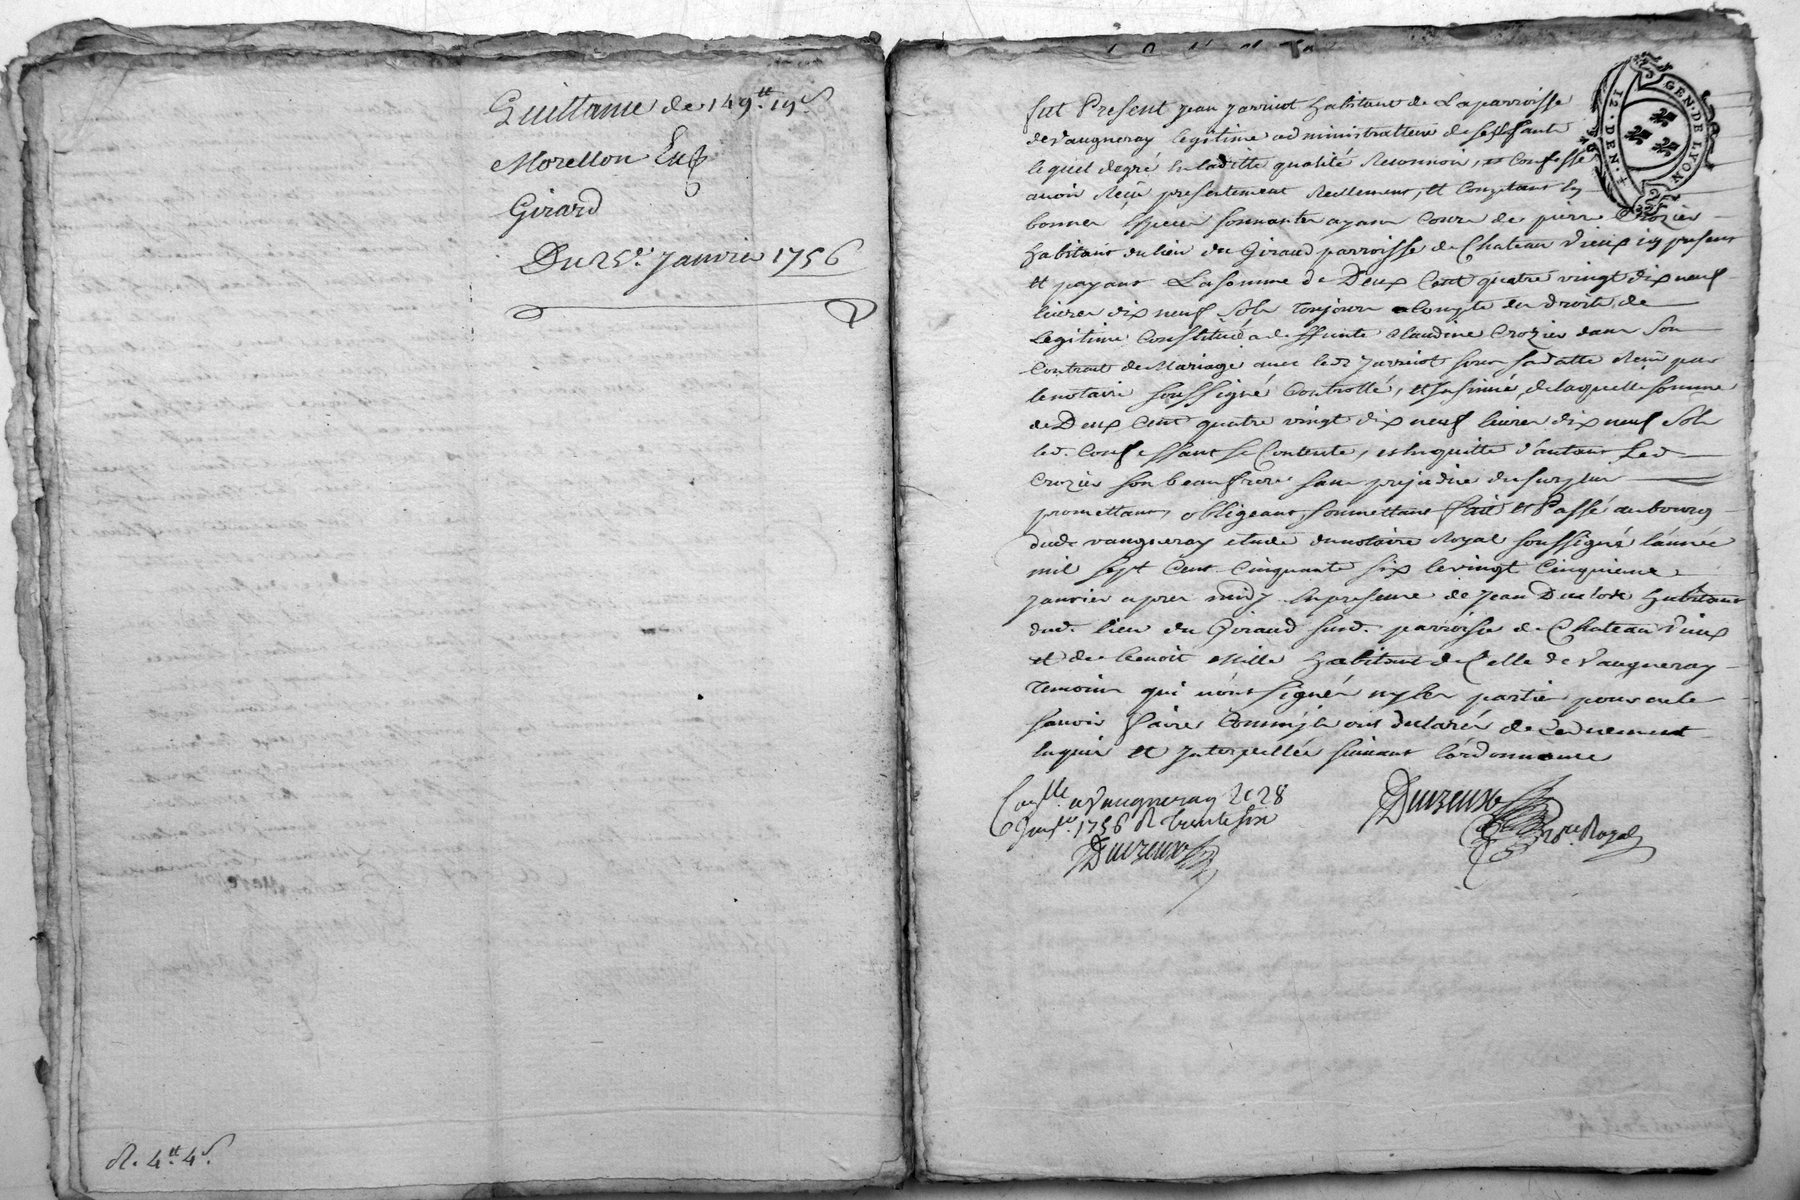 Quittance de 149ᵗᵗ 19ˢ
Morellon
Girard
Du 25ᵉ Janvier 1756
R. 4ᵗᵗ 4ˢ
GEN. DE LYON
12. DEN.
fut Present Jean Jarricot habitant de La parroisse
de Vaugneray legitime administratteur de ses Enfants
lequel de gré en laditte qualité Reconnoi, et Confesse
avoir Reçu presentement Reellement, et Comptant En
bonnes Especes sonnantes ayant Cour de pierre Crozier
habitant du lieu du Giraud parroisse de Chateau Vieux icy present
et payant La somme de Deux Cent quatre vingt dix neuf
livres dix neuf sols toujours a Compte du droits de
Legitime Constitué a deffunte Claudine Crozier dans son
Contrat de Mariage avec led Jarricot sous sa datte Reçu par
le notaire soussigné Controllé, et Insinué, de laquelle somme
de Deux Cent quatre vingt dix neuf livres dix neuf sols
led. Confessant se Contente, et En quitte d'autant Led
Crozier son beaufrere sans prejudice du surplus
promettant, obligeant, soumettant fait et Passé au bourg
dud. vaugneray etude du notaire Royal soussigné l'année
mil sept Cent Cinquante six le vingt Cinquieme
Janvier apres midy En presence de Jean habitant
dud. lieu du Giraud susd. parroisse de Chateau Vieux
et de benoit Mille habitant de Celle de Vaugneray
temoins qui n'ont signés ny les parties pour ne le
savoir faire Comm'jls ont declarés de Ce duement
Enquis et Interpellés suivant l'ordonnance
Conᵗˡˡᵉ a Vaugneray le 28
Janvᵉʳ 1756 R trente six
Nᵒʳᵉ Royal